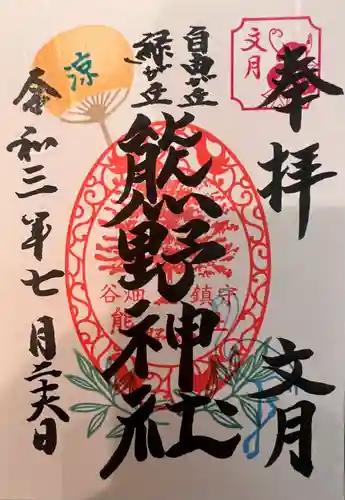 奉拝
文月
文月
自由が丘
緑が丘
熊野神社
谷畑 鎮守
涼
令和三年七月二十六日